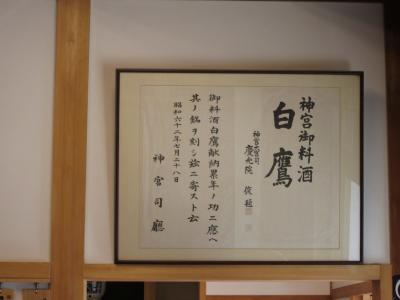 神宮御料酒
白鷹
神宮大宮司
慶光院 俊
御料酒白鷹献納累年ノ功ニ應ヘ
其ノ銘ヲ刻シ茲ニ寄スト云
昭和六十二年七月二十八日
神宮司廳